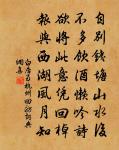 自別錢塘山水後
不多飲酒懶吟詩
欲將此意憑回棹
報與西湖風月知
杭州回舫詞典